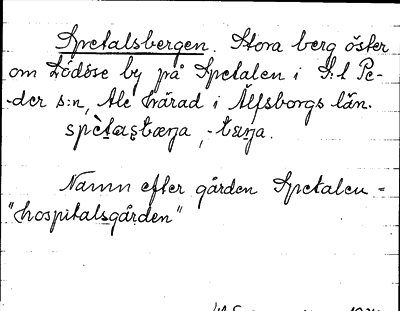 Spetalsbergen. Stora berg öster
om Lödöse by på Spetalen i S:t Pe-
der s:n, Ale härad i Älfsborgs län.
Namn efter gården Spetalen =
"hospitalsgården"